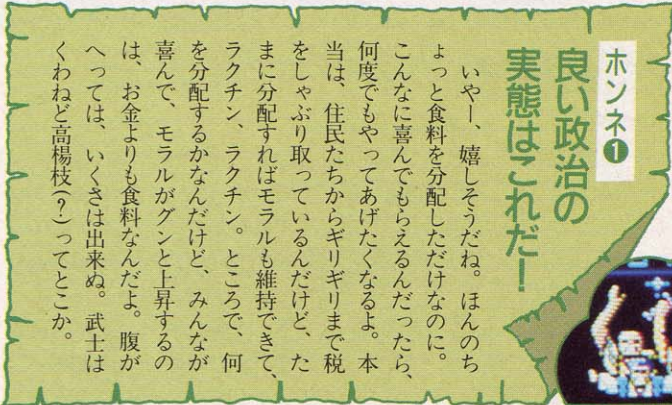 ホンネ❶
良い政治の
実態はこれだ！
いやー、嬉しそうだね。ほんのち
ょっと食料を分配しただけなのに。
こんなに喜んでもらえるんだったら、
何度でもやってあげたくなるよ。本
当は、住民たちからギリギリまで税
をしゃぶり取っているんだけど、た
まに分配すればモラルも維持できて、
ラクチン、ラクチン。ところで、何
を分配するかなんだけど、みんなが
喜んで、モラルがグンと上昇するの
は、お金よりも食料なんだよ。腹が
へっては、いくさは出来ぬ。武士は
くわねど高楊枝(？)ってとこか。